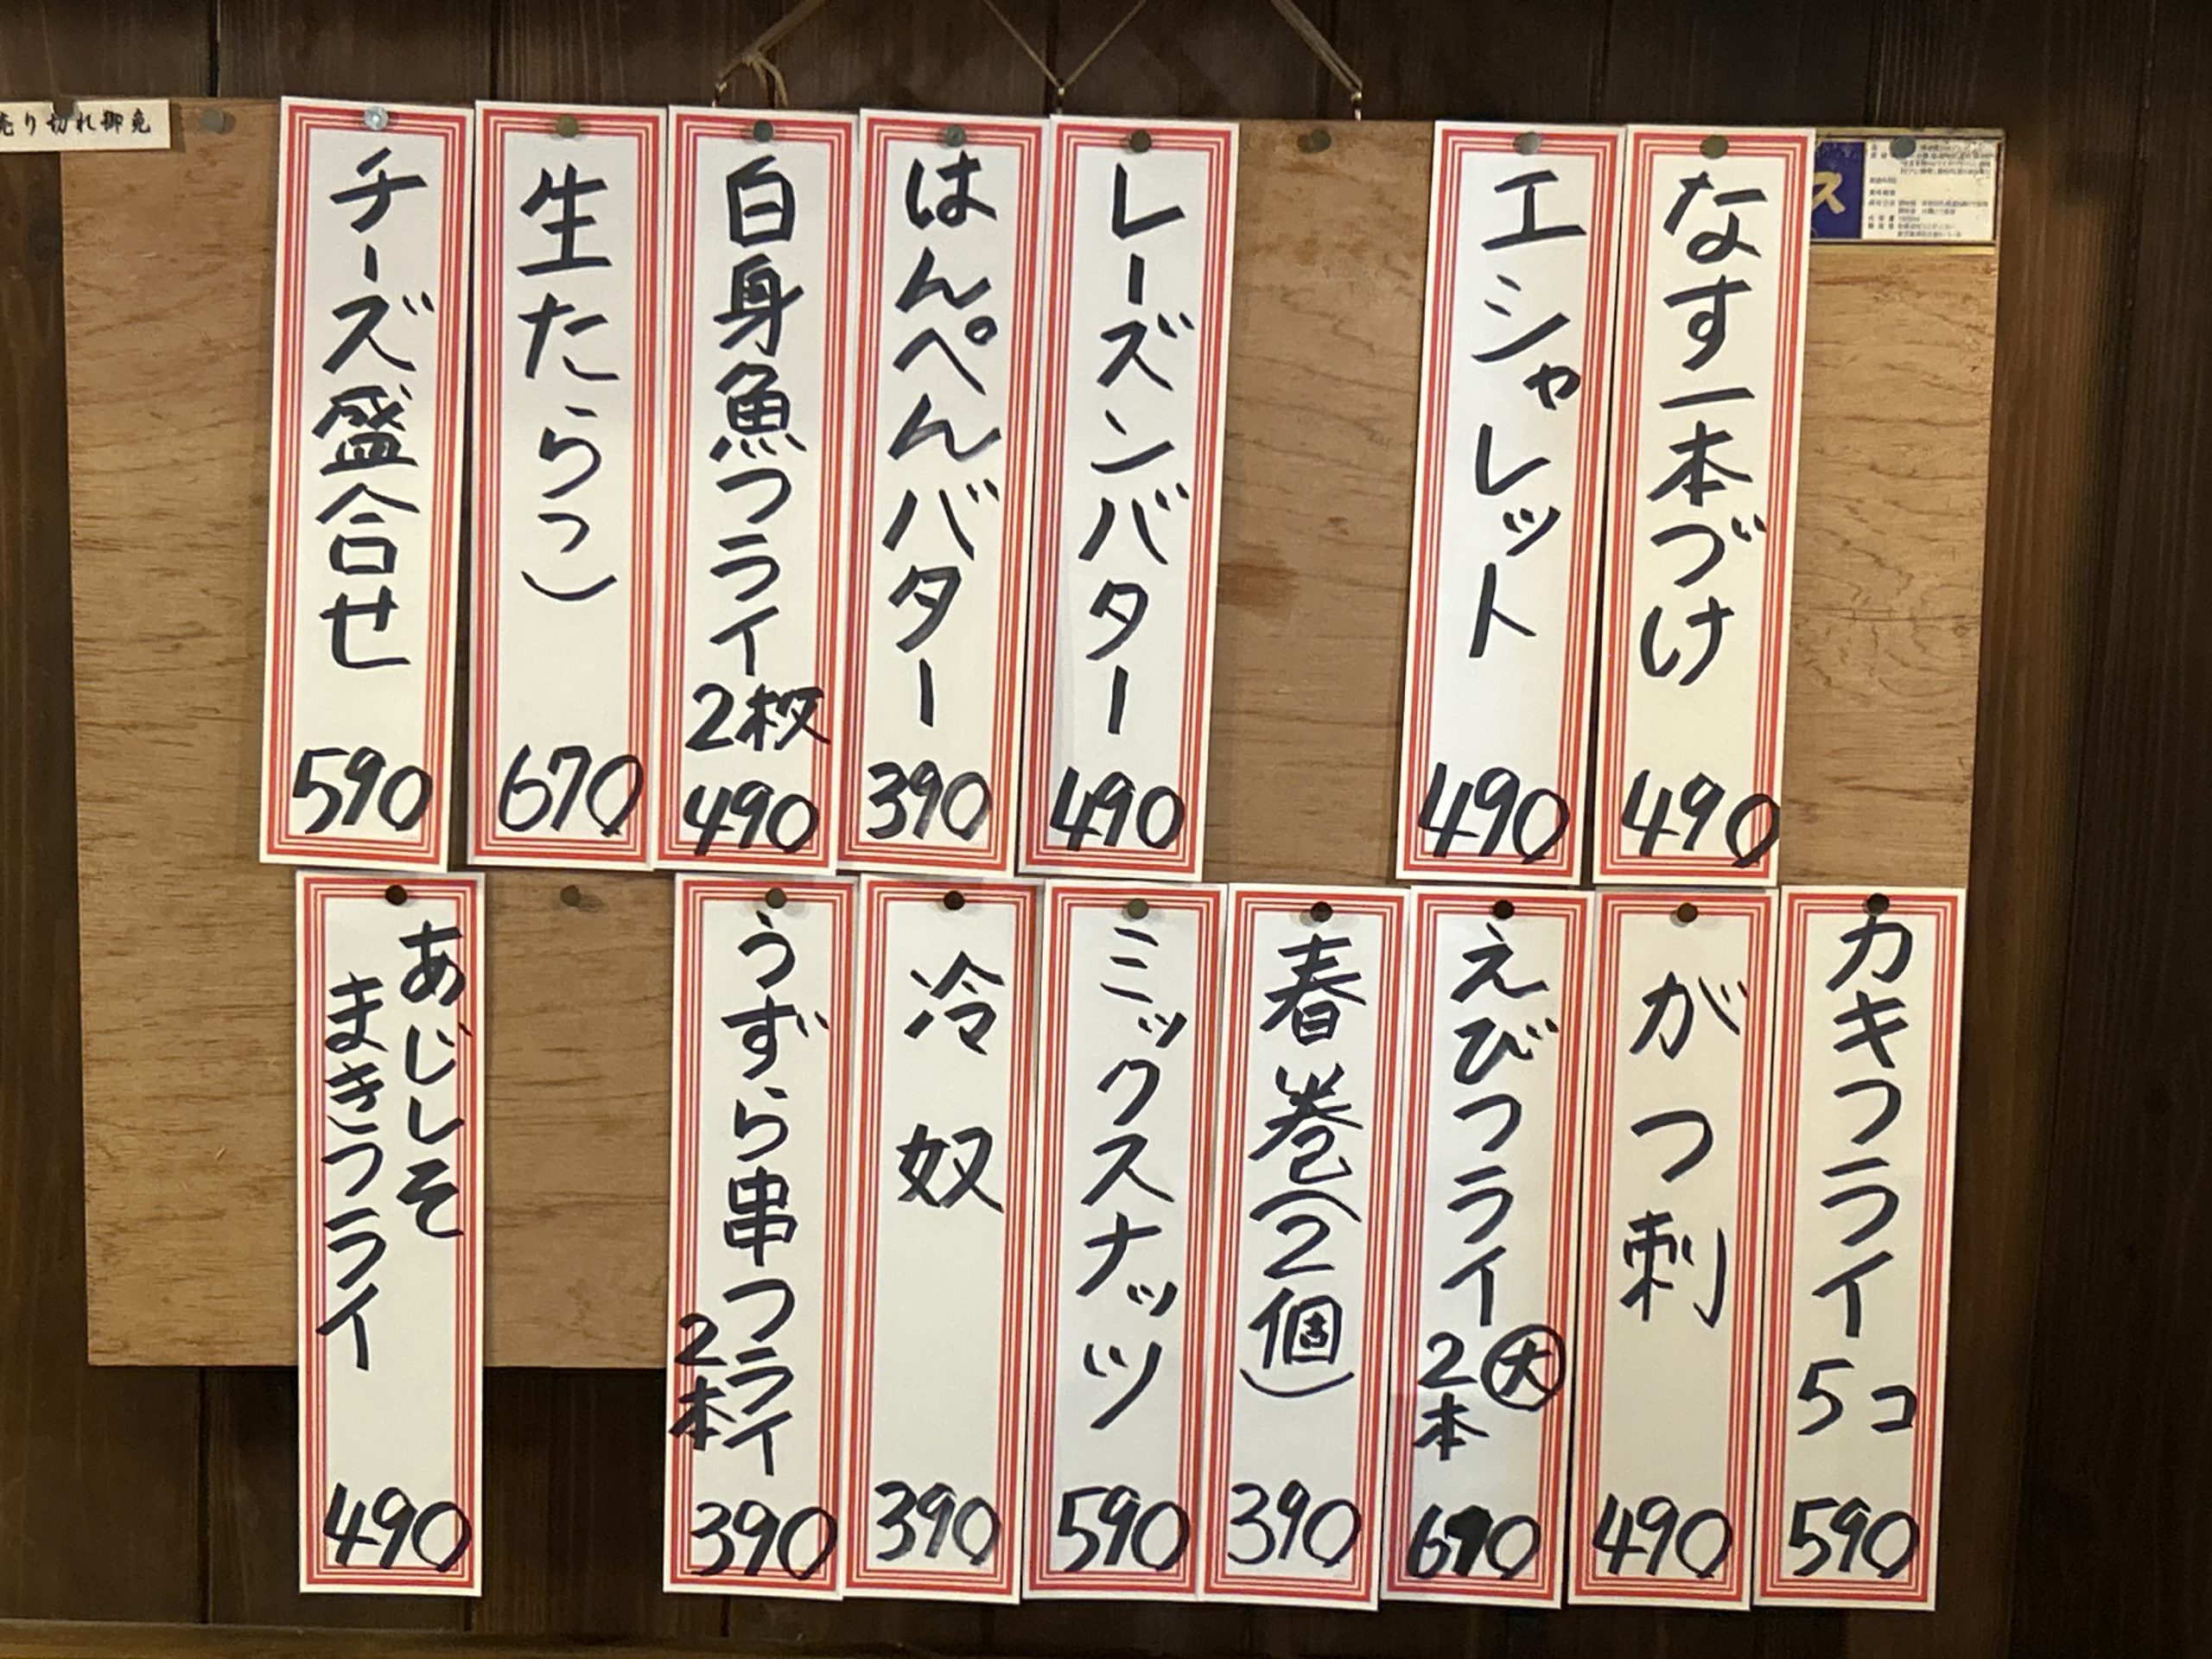 なす一本づけ
490
エシャレット
490
レーズンバター
490
はんぺんバター
390
白身魚フライ
2枚
490
生たらこ
670
チーズ盛合せ
590
売り切れ御免
カキフライ
5コ
590
がつ刺
490
えびフライ
大
2本
690
春巻(2個)
390
ミックスナッツ
590
冷奴
390
うずら串フライ
2本
390
あじしそ
まきフライ
490
ス